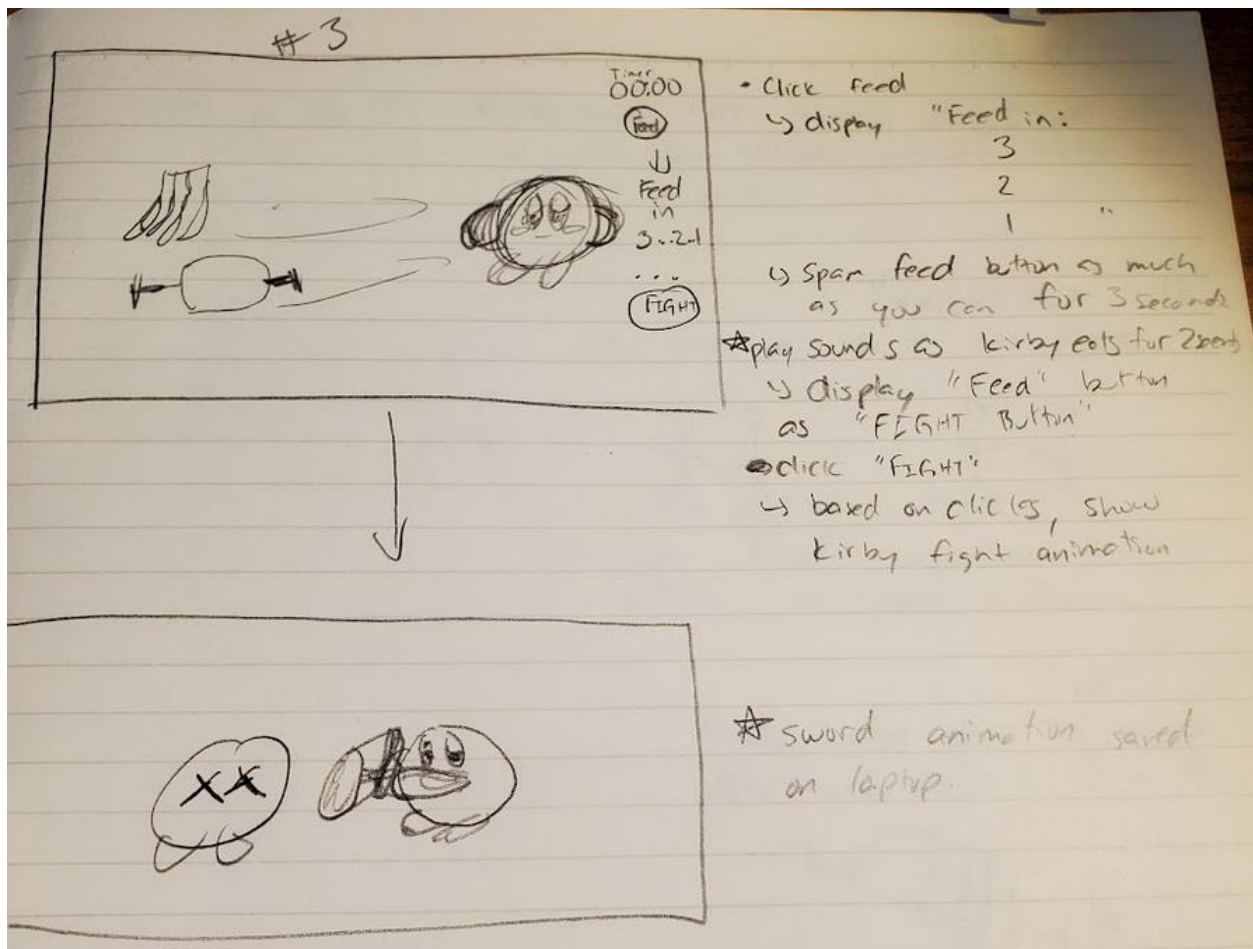 #3
Timer
00:00
Feed
Feed
in
3..2..1
...
FIGHT
• Click feed
↳ display "Feed in:
3
2
1 "
↳ Spam feed button as much
as you can for 3 seconds
☆ play sounds as kirby eats for 2
↳ display "Feed" button
as "FIGHT Button"
• click "FIGHT"
↳ based on clicks, show
kirby fight animation
☆ sword animation saved
on laptop.